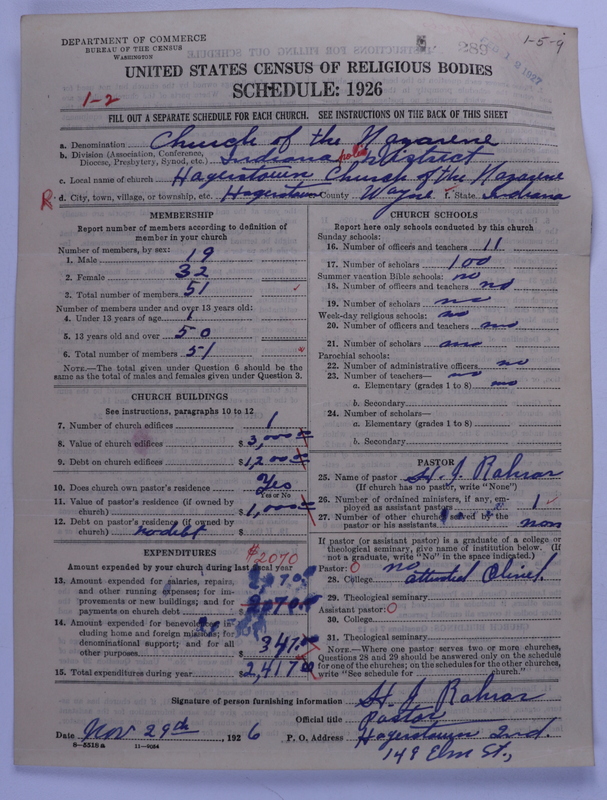 DEPARTMENT OF COMMERCE
BUREAU OF THE CENSUS
WASHINGTON
1-5-9
1927
UNITED STATES CENSUS OF RELIGIOUS BODIES
SCHEDULE: 1926
1-2
FILL OUT A SEPARATE SCHEDULE FOR EACH CHURCH. SEE INSTRUCTIONS ON THE BACK OF THIS SHEET
a. Denomination Church of the Nazarene
b. Division (Association, Conference, Diocese, Presbytery, Synod, etc.) Indianapolis District
c. Local name of church Hagerstown Church of the Nazarene
R d. City, town, village, or township, etc. Hagerstown County Wayne f. State Indiana
MEMBERSHIP
Report number of members according to definition of member in your church
Number of members, by sex:
1. Male 19
2. Female 32
3. Total number of members 51
Number of members under and over 13 years old:
4. Under 13 years of age 1
5. 13 years old and over 50
6. Total number of members 51
NOTE.—The total given under Question 6 should be the same as the total of males and females given under Question 3.
CHURCH BUILDINGS
See instructions, paragraphs 10 to 12
7. Number of church edifices 1
8. Value of church edifices $3,000.00
9. Debt on church edifices $1,200
10. Does church own pastor's residence Yes
Yes or No
11. Value of pastor's residence (if owned by church) $1,000
12. Debt on pastor's residence (if owned by church) no debt $
EXPENDITURES
$2070
Amount expended by your church during last fiscal year
13. Amount expended for salaries, repairs, and other running expenses; for improvements or new buildings; and for payments on church debt
14. Amount expended for benevolences, including home and foreign missions; for denominational support; and for all other purposes. 347.00
15. Total expenditures during year $2,417.00
CHURCH SCHOOLS
Report here only schools conducted by this church
Sunday schools:
16. Number of officers and teachers 11
17. Number of scholars 100
Summer vacation Bible schools: no
18. Number of officers and teachers no
19. Number of scholars no
Week-day religious schools: no
20. Number of officers and teachers no
21. Number of scholars no
Parochial schools:
22. Number of administrative officers no
23. Number of teachers— no
a. Elementary (grades 1 to 8) no
b. Secondary
24. Number of scholars—
a. Elementary (grades 1 to 8)
b. Secondary
PASTOR
25. Name of pastor H. J. Rahrar
(If church has no pastor, write "None")
26. Number of ordained ministers, if any, employed as assistant pastors 1
27. Number of other churches served by the pastor or his assistants non
If pastor (or assistant pastor) is a graduate of a college or theological seminary, give name of institution below. (If not a graduate, write "No" in the space indicated.)
Pastor: O no
28. College attended
29. Theological seminary
Assistant pastor: O
30. College
31. Theological seminary
NOTE.—Where one pastor serves two or more churches, Questions 28 and 29 should be answered only on the schedule for one of the churches; on the schedules for the other churches, write "See schedule for church."
Signature of person furnishing information H. J. Rahrar
Official title Pastor
Date Nov 29th, 1926 P. O. Address Hagerstown Ind.
8-5518 a 11-9024
149 Elm St.,